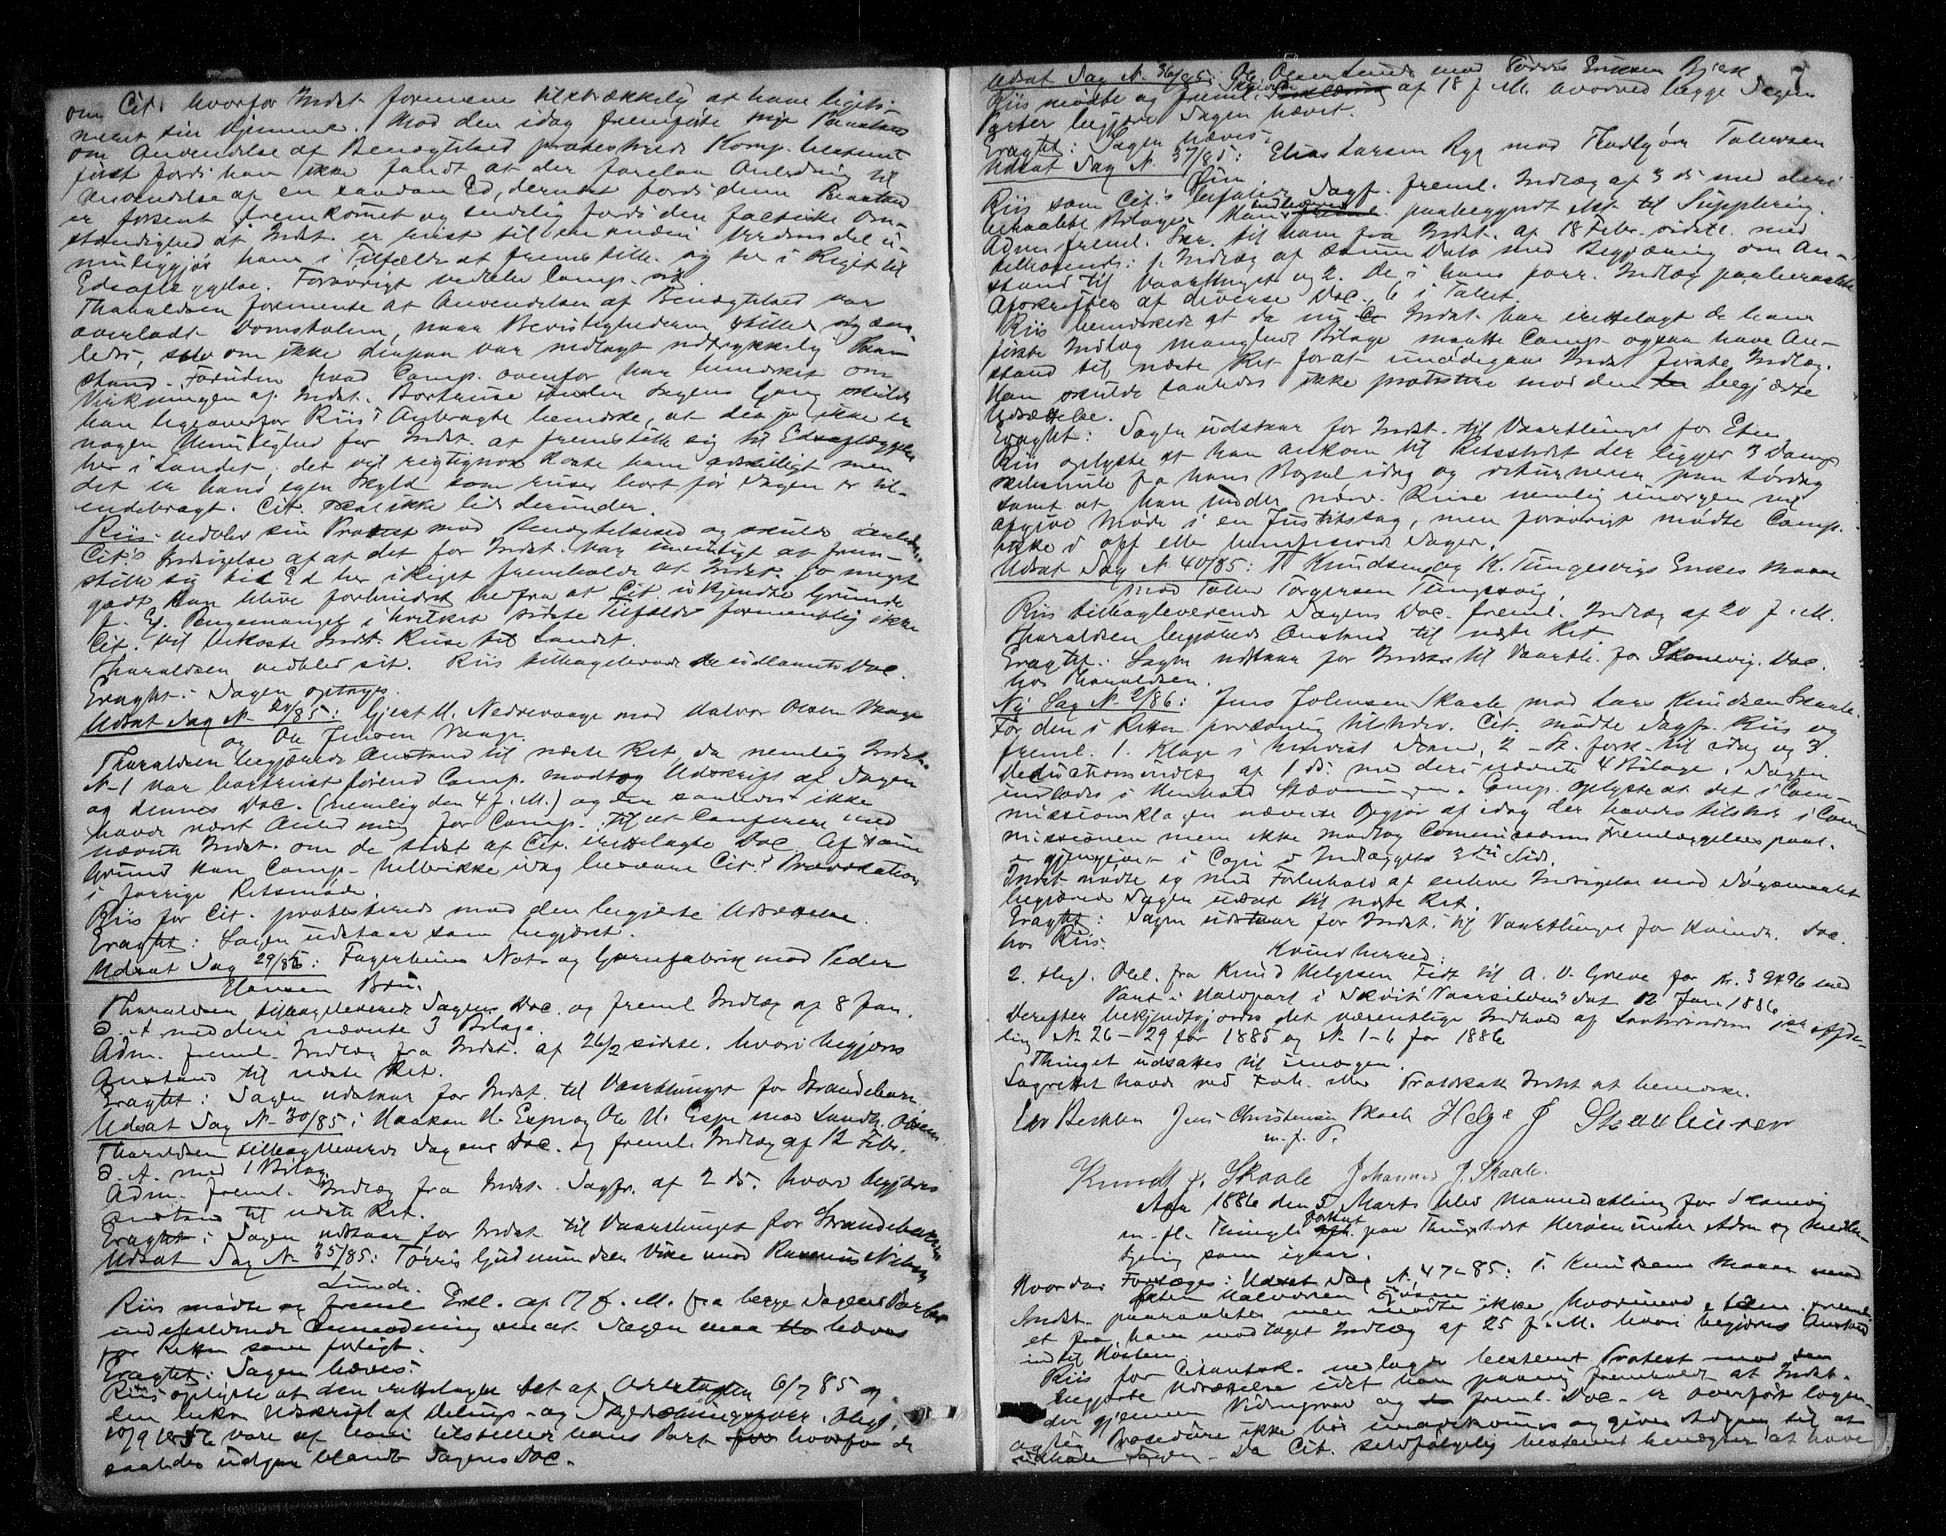 om Cit. hvorfor Indst. formene tilstrækkelig at have legiti-
meret sin Hjemme. Mod den idag fremførte nye Paastand
om Anvendelse af Benægtelsed protesterede Komp. bestemt
først fordi han ikke fandt at der forelaa Anledning til
Anvendelse af en saadan Ed, dernæst fordi denne Paastand
er forsent fremkommet og endelig fordi den factiske Om-
stændighed at Indst. er reist til en anden Verdensdel u-
muliggjør ham i Tilfælde at fremstille sig her i Riget til
Edsaflæggelse. Forøvrigt vedblev Comp. sig.
Tharaldsen formente at Anvendelsen af Benægtelsed var
overladt Domstolen, naar Bevislighederne stillede sig saa-
leds, selv om ikke derpaa var nedlagt udtrykkelig Paa-
stand. Foruden hvad Comp. ovenfor har bemærket om
Virkningen af Indst. Bortreise under Sagens Gang skulde
han ligeoverfor Riis's Anbragte bemærke, at der jo ikke er
nogen Umulighed for Indst. at fremstille sig til Edsaflæggelse
her i Landet; det vil rigtignok koste ham adskilligt men
det er hans egen Skyld som reiser bort før Sagen er til-
endebragt. Cit. skal ikke lide derunder.
Riis vedblev sin Protest mod Benægtelsesed og skulde i Anledn.
Cit's Indsigelse af at det for Indst. var umuligt at frem-
stille sig til Ed her i Riget fremholde at Indst. jo meget
godt kan blive forhindret herfra af Cit. uvedkjendte Grunde
f. Ex. Pengemangel i hvilket sidste Tilfælde formentlig ikke
Cit. vil bekoste Indst. Reise til Landet.
Tharaldsen vedblev sit. Riis tilbageleverede de udlaante Doc.
Eragtet: Sagen optages.
Udsat Sag N. /85: Gjert M. Nedrevaage mod Halvor Olsen Vaage
og Ole Jensen Vaage.
Tharaldsen begjærede Anstand til næste Ret da nemlig Indst.
N. 1 var bortreist førend Comp. modtog Udskrift af Sagen
og dennes Doc. (nemlig den 4 f. M.) og der saaledes ikke
havde været Anledning for Comp. til at conferere med
nævnte Indst. om de sidst af Cit. irettelagte Doc. Af samme
Grund kan Comp. heller ikke idag besvare Cit's Provokation
i forrige Retsmøde.
Riis for Cit. protesterede mod den begjærte Udsættelse.
Eragtet: Sagen udstaar som begjæret.
Udsat Sag 29/85: Fagerheims Not- og Garnfabrik mod Peder
Hansen Bru.
Tharaldsen tilbageleverede Sagens Doc. og freml. Indlæg af 8 Jan.
d. A. med deri nævnte 3 Bilage.
Adm. freml. Indlæg fra Indst. af 26/2 sidstl. hvori begjæres
Anstand til næste Ret.
Eragtet: Sagen udstaar for Indst. til Vaarthinget for Strandebarm.
Udsat Sag N. 30/85: Haakon H. Espe og Ole H. Espe mod Landh.
Tharaldsen tilbageleverede Sagens Doc. og freml. Indlæg af 12 Febr.
d. A. med 1 Bilag.
Adm. freml. Indlæg fra Indst. Sagfr. af 2 ds. hvori begjæres
Anstand til næste Ret.
Eragtet: Sagen udstaar for Indst. til Vaarthinget for Strandebarm
Udsat Sag N. 35/85: Tørris Gudmundsen Vike mod Rasmus Nilsen
Lunde.
Riis mødte og freml. Erkl. af 17 f. M. fra begge Sagens Parter
indeholdende Anmodning om at Sagen maa hæves
for Retten som forligt.
Eragtet: Sagen hæves.
Riis oplyste at den rettelagte af 6/7 85 og
den bekr. Udskrift af Delings- og
10/9 1856 vare af ham tilstillet hans Part hvorfor de
saaledes udgaa blandt Sagens Doc.
Udsat Sag N. 36/85: Ole Olsen Lunde mod Tørris Eriksen Bjerk
Riis mødte og freml. Skrivelse af 18 f. M. hvorved begge Sagens
Parter begjære Sagen hævet.
Eragtet: Sagen hæves.
Udsat Sag N. 37/85: Elias Larsen Ryg mod Thorbjørn Tollevsen
Øien.
Riis som Cit's befalede Sagf. freml. Indlæg af 3 ds med deri
beraabte Bilage. Han paabegyndt til Supplering.
Adm. freml. Skr. til ham fra Indst. af 18 Febr. sidstl. med
tilhørende: 1. Indlæg af samme Dato med Begjæring om An-
stand til Vaarthinget og 2. De i hans forr. Indlæg paaberaabte
Afskrifter af diverse Doc., 6 i Tallet.
Riis bemærkede at da nu Indst. har irettelagt de hans
første Indlæg manglende Bilage maatte Comp. ogsaa have An-
stand til næste Ret forat imødegaa Indst. første Indlæg.
Han skulde saaledes ikke protestere mod den begjærte
Udsættelse.
Eragtet: Sagen udstaar for Indst. til Vaarthinget for Etne.
Riis oplyste at han ankom til Retsstedet der ligger 3 Damp-
skibsmile fra hans Bopæl idag og returnerer paa Lørdag
samt at han under nærv. Reise nemlig imorgen maa
afgive Møde i en Justitssag, men forøvrigt mødte Comp.
ikke i off. eller beneficerede Sager.
Udsat Sag N. 40/85: T. Knudsen og K. Tungesvigs Enkes Maae
mod Tollev Torgersen Tungesvig.
Riis tilbageleverende Sagens Doc. freml. Indlæg af 20 f. M.
Tharaldsen begjærede Anstand til næste Ret
Eragtet: Sagen udstaar for Indst. til Vaarth. for Skonevig. Doc.
hos Tharaldsen.
Ny Sag N. 2/86: Jens Johnsen Skaale mod Lars Knudsen Skaale.
For den i Retten personlig tilstedev. Cit. mødte Sagf. Riis og
freml. 1. Klage i henvist Stand, 2 til idag og 3
Deductionsindlæg af 1 ds. med deri nævnte 4 Bilage. Sagen
indlodes i Henhold Stævningen. Comp. oplyste at det i Com-
missionsklagen nævnte Opgjør af idag der havdes tilstede i Com-
missionen men ikke modtog Commissionens Fremlæggelsespaat.
er gjengivet i Copi i Indlæggets 3die Side.
Indst. mødte og med Forbehold af enhver Indsigelse mod Søgsmaalet
begjærede Sagen udsat til næste Ret.
Eragtet: Sagen udstaar for Indst. til Vaarthinget for Kvindh. Doc.
hos Riis.
Kvindherred:
2. thgl. Obl. fra Knud Helgesen Fedt til A. V. Greve for Kr. 3 96 med
Pant i Halvpart i Skøit "Vaarsilden" dat. 12 Jan. 1886
Derefter bekjendtgjordes det væsentlige Indhold af Lovtidendens 1ste Afde-
ling N. 26-29 for 1885 og N. 1-6 for 1886
Thinget udsattes til imorgen.
Lagrettet havde ved Forh. eller Protokoll Intet at bemærke.
Jens Christensen Skaale Helge J Skaaluren
m. f. P.
Knudt J. Skaale Johannes J. Skaale.
Aar 1886 den 5 Marts blev Mannedalting for Skonevig
m. fl. Thingl. fortsat paa Thingstedet Herøen under Adm. og Medbe-
tjening som igaar.
Hvorda Foretoges: Udsat Sag N. 47-85: T. Knudsens Maae mod
Halvorsen
Indst. paaraabtes men mødte ikke, hvorimod Adm. freml.
et fra ham modtaget Indlæg af 25 f. M. hvori begjæres Anstand
indtil Høsten.
Riis for Citantsk. nedlagde bestemt Protest mod den
begjærte Udsættelse idet han paany fremholdt at Indst.
der gjennem Vidneprov og freml. Doc. er overført logn-
agtig Procedure ikke bør imødekommes og gives Adgang til at
udhale Sagen. Da Cit. selvfølgelig bestemt benægter at have